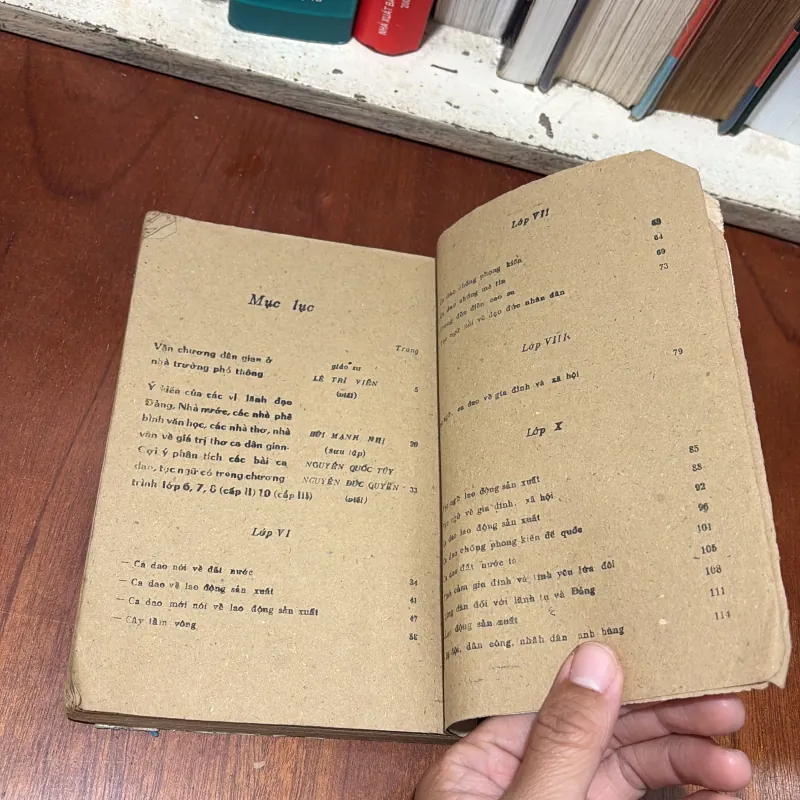 NHÀ XUẤT BẢN
Mục lục
Trang
Văn chương dân gian ở
nhà trường phổ thông
giáo sư
LÊ TRÍ VIỄN 5
(viết)
Ý kiến của các vị lãnh đạo
Đảng, Nhà nước, các nhà phê
bình văn học, các nhà thơ, nhà
văn về giá trị thơ ca dân gian
BÙI MẠNH NHỊ 20
(sưu tập)
Gợi ý phân tích các bài ca
dao, tục ngữ có trong chương
trình lớp 6, 7, 8 (cấp II) 10 (cấp III)
NGUYỄN QUỐC TÚY
NGUYỄN ĐỨC QUYỀN 33
(viết)
Lớp VI
— Ca dao nói về đất nước 34
— Ca dao về lao động sản xuất 41
— Ca dao mới nói về lao động sản xuất 47
— Cây tầm vông
Lớp VII
63
dao chống phong kiến 64
chống mê tín 69
đồn điền cao su 73
ngữ nói về đạo đức nhân dân
Lớp VIII
79
ca dao về gia đình và xã hội
Lớp X
ngữ lao động sản xuất 85
ngữ về gia đình, xã hội 88
dao lao động sản xuất 92
dao chống phong kiến đế quốc 96
dao đất nước ta 101
cảm gia đình và tình yêu lứa đôi 105
dân đối với lãnh tụ và Đảng 108
động sản xuất 111
đội, dân công, nhân dân anh hùng 114